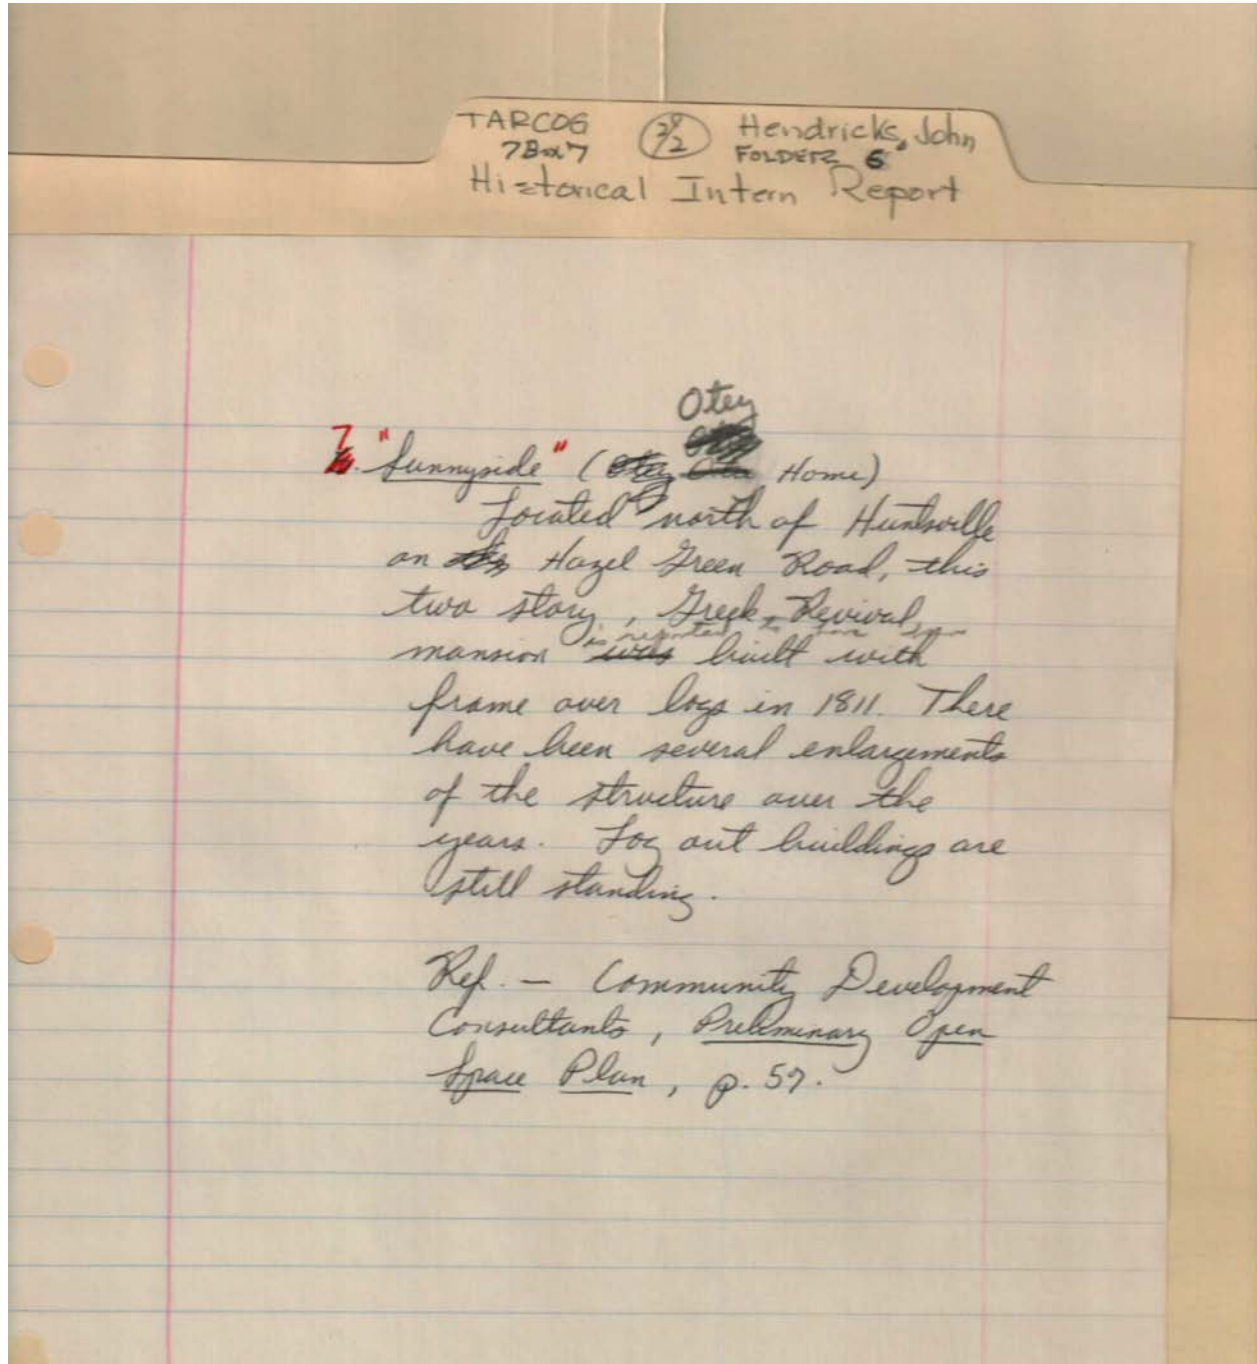 TARCOG 2/2 Hendricks, John
7Box7 FOLDER 6
Historical Intern Report
Otey
7. "Sunnyside" ( Home)
Located north of Huntsville
on Hazel Green Road, this
two story, Greek Revival,
is reported to have been
mansion was built with
frame over logs in 1811. There
have been several enlargements
of the structure over the
years. Log out buildings are
still standing.
Ref. — Community Development
Consultants, Preliminary Open
Space Plan, p. 57.